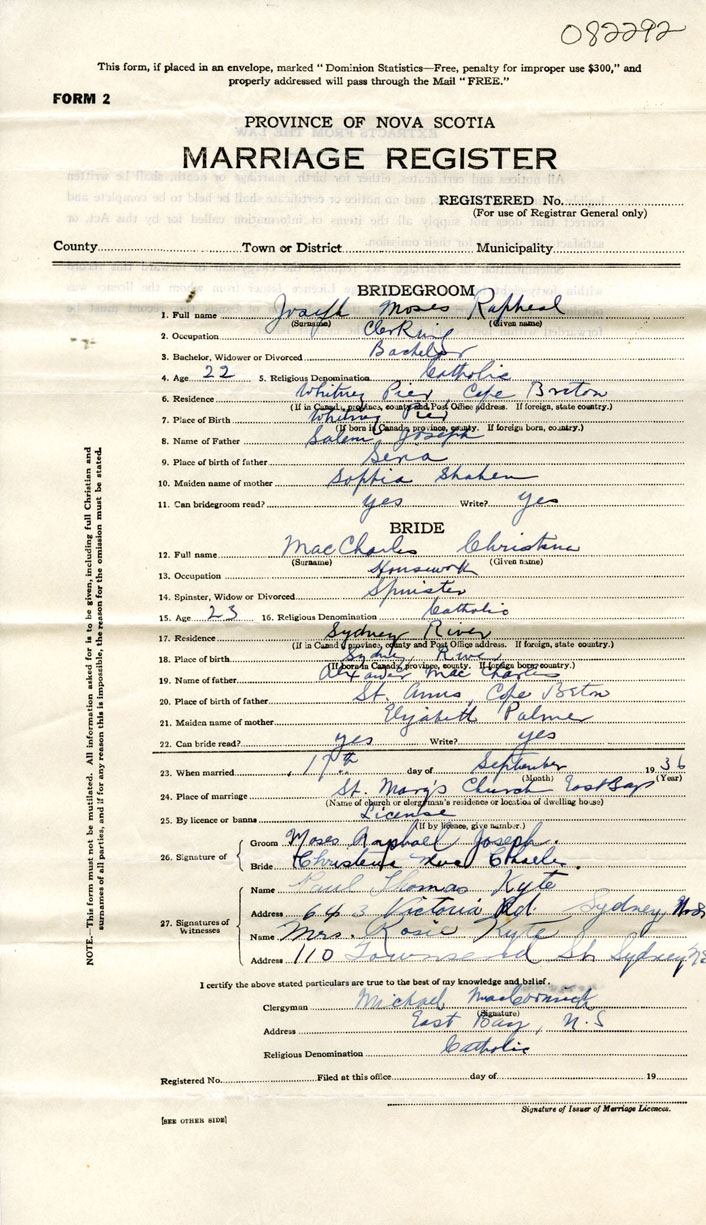 082292
This form, if placed in an envelope, marked "Dominion Statistics—Free, penalty for improper use $300," and
properly addressed will pass through the Mail "FREE."
FORM 2
PROVINCE OF NOVA SCOTIA
MARRIAGE REGISTER
REGISTERED No.
(For use of Registrar General only)
County Town or District Municipality
BRIDEGROOM
1. Full name Joseph Moses Rapheal
(Surname) (Given name)
2. Occupation Clerking
3. Bachelor, Widower or Divorced Bachelor
4. Age 22 5. Religious Denomination Catholic
6. Residence Whitney Pier Cape Breton
(If in Canada, province, county and Post Office address. If foreign, state country.)
7. Place of Birth Whitney Pier
(If born in Canada, province, county. If foreign born, country.)
8. Name of Father Salem Joseph
9. Place of birth of father
10. Maiden name of mother Sophia Shahen
11. Can bridegroom read? yes Write? yes
BRIDE
12. Full name MacCharles Christena
(Surname) (Given name)
13. Occupation Housework
14. Spinster, Widow or Divorced Spinster
15. Age 23 16. Religious Denomination Catholic
17. Residence Sydney River
(If in Canada, province, county and Post Office address. If foreign, state country.)
18. Place of birth Sydney River
(If born in Canada, province, county. If foreign born, country.)
19. Name of father MacCharles
20. Place of birth of father St. Anns, Cape Breton
21. Maiden name of mother Elizabeth Palmer
22. Can bride read? yes Write? yes
23. When married 17th day of September 1936
(Month) (Year)
24. Place of marriage St. Mary's Church East Bay
(Name of church or clergyman's residence or location of dwelling house)
25. By licence or banns License
(If by licence, give number.)
26. Signature of Groom Moses Raphael Joseph.
Bride Christena Mac Charles.
27. Signatures of Witnesses Name Paul Thomas Kyte
Address 643 Victoria Rd Sydney N.S
Name Mrs. Rosie Kyte
Address 110 Townsend St Sydney NS
I certify the above stated particulars are true to the best of my knowledge and belief.
Clergyman Michael MacCormick
(Signature)
Address East Bay, N.S
Religious Denomination Catholic
Registered No. Filed at this office day of 19
Signature of Issuer of Marriage Licences.
[SEE OTHER SIDE]
NOTE.—This form must not be mutilated. All information asked for is to be given, including full Christian and
surnames of all parties, and if for any reason this is impossible, the reason for the omission must be stated.